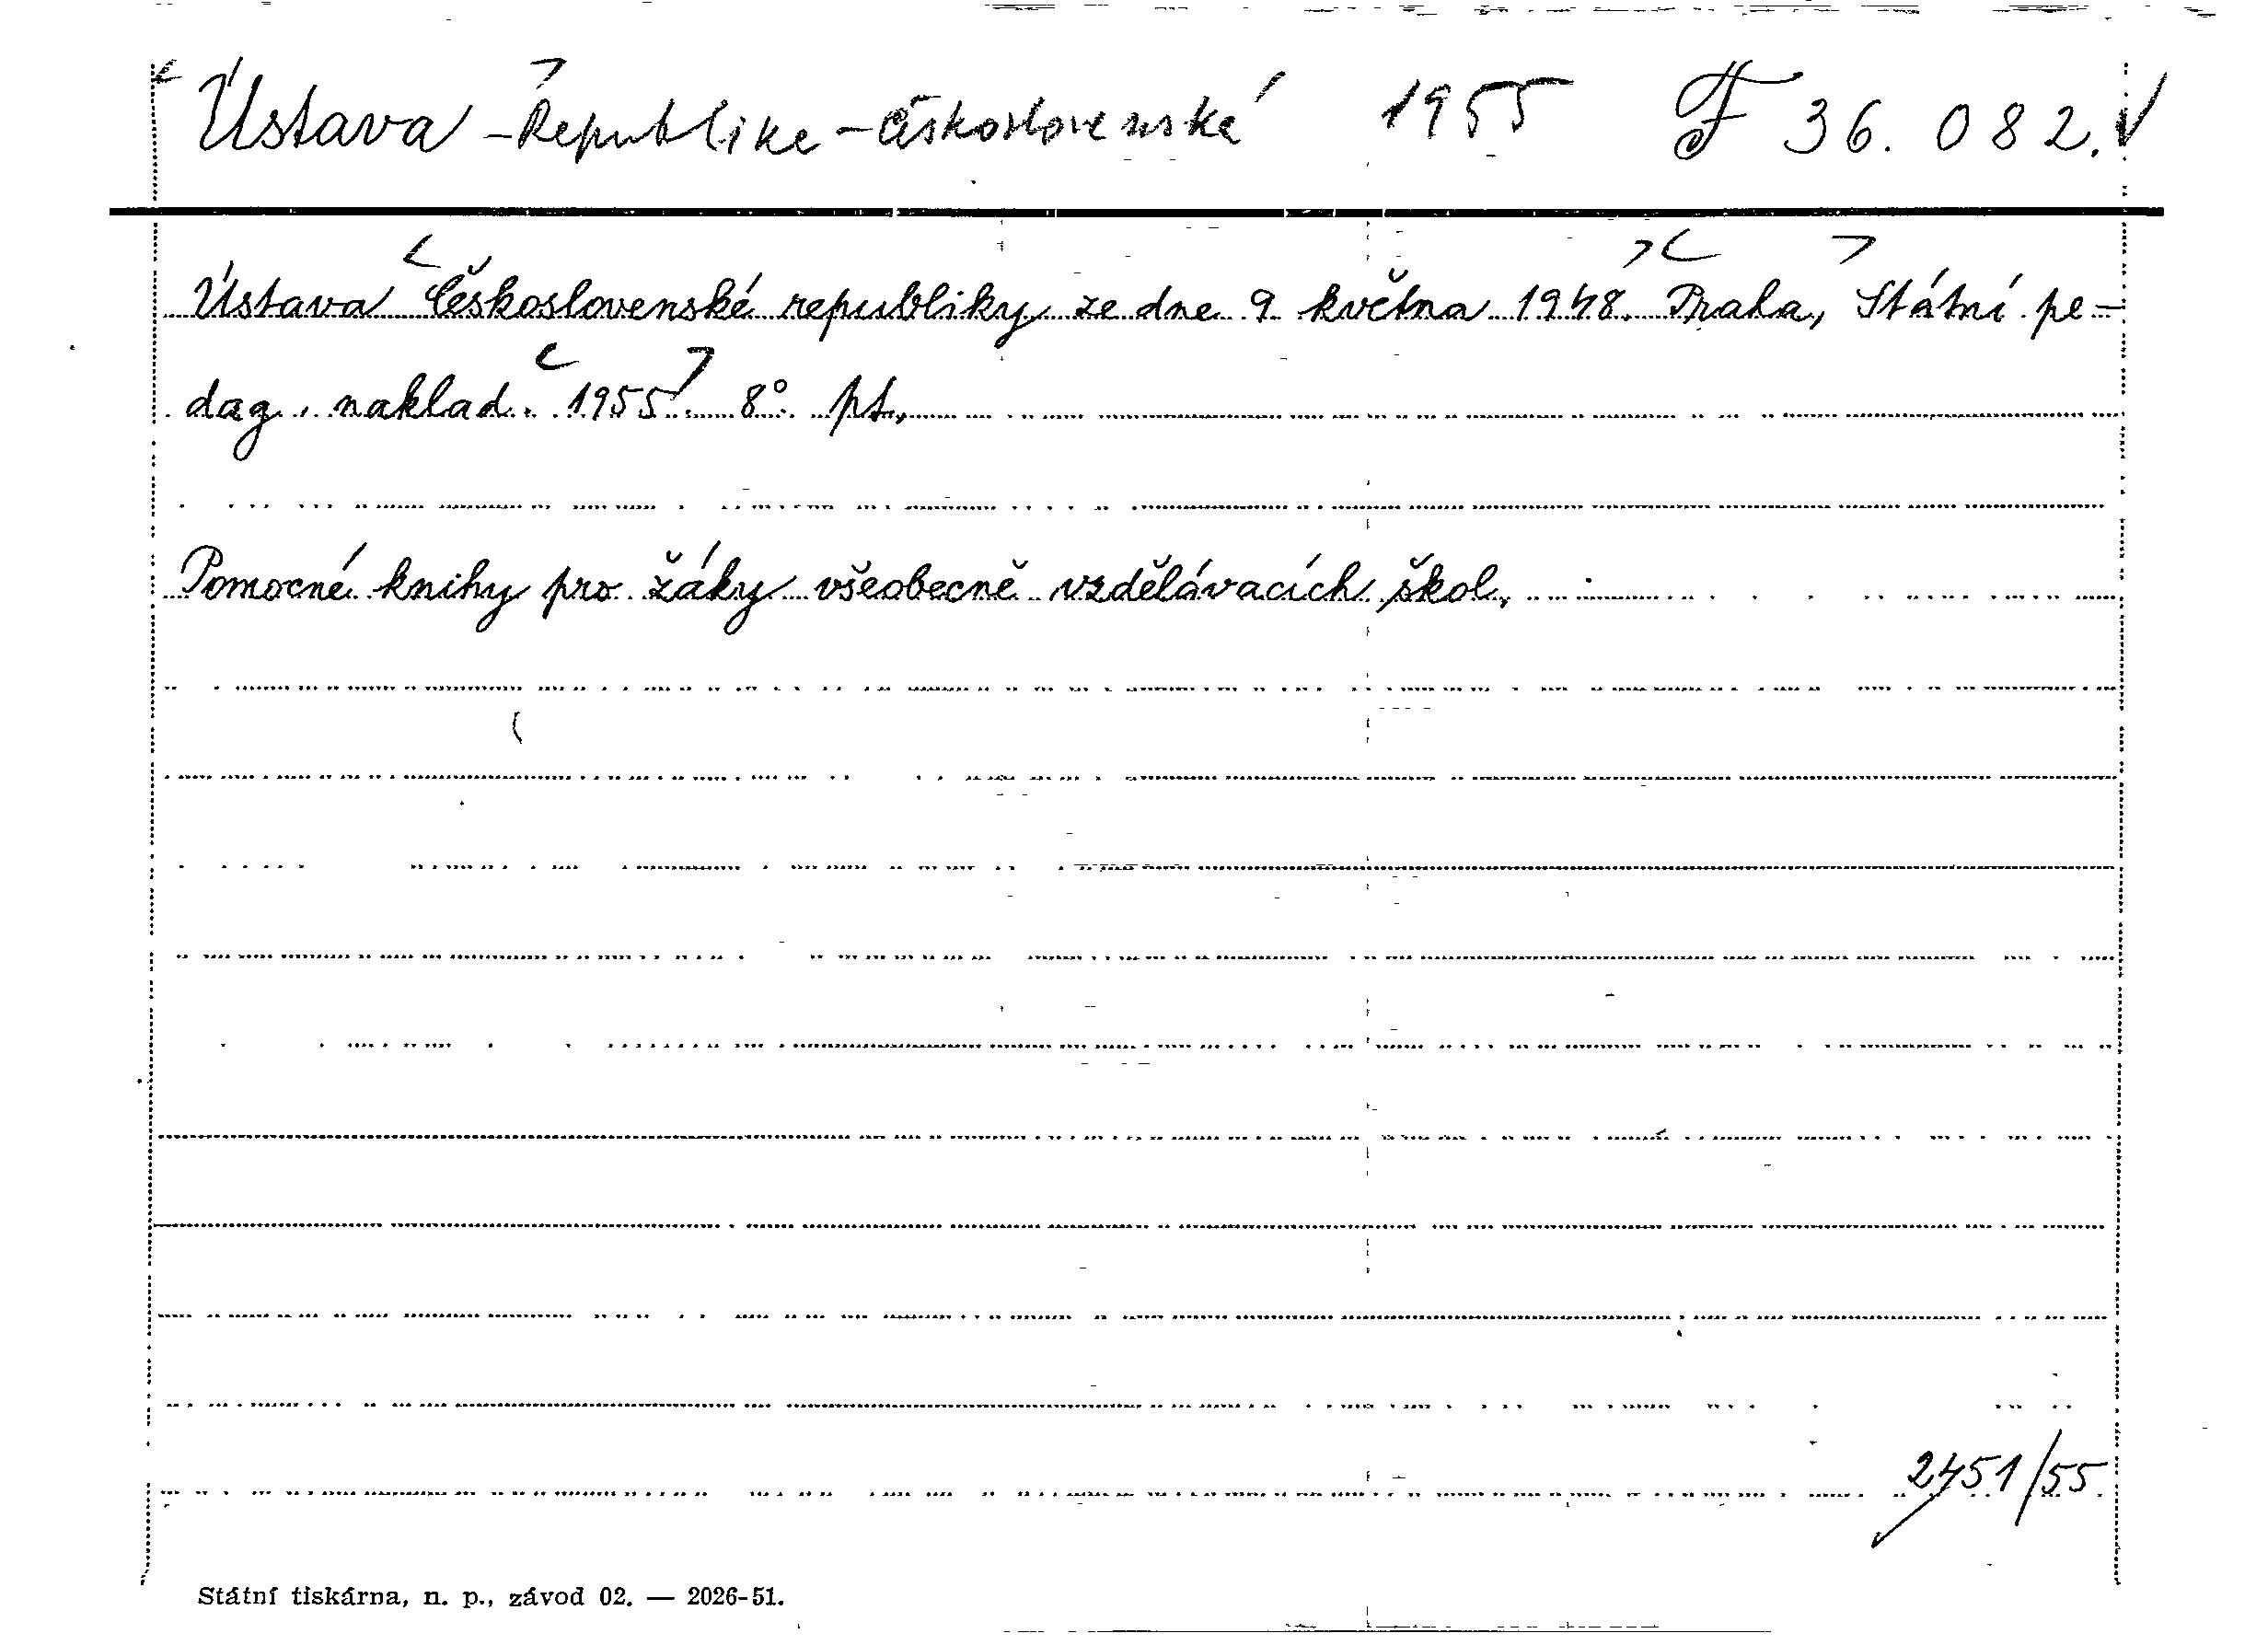 Ústava - Republike - Československá 1955 F 36.082.
Ústava Československé republiky ze dne 9 května 1948. Praha, Státní pe-
dag. naklad. 1955. 8°. pt.
Pomocné knihy pro žáky všeobecně vzdělávacích škol.
2451/55
Státní tiskárna, n. p., závod 02. — 2026-51.